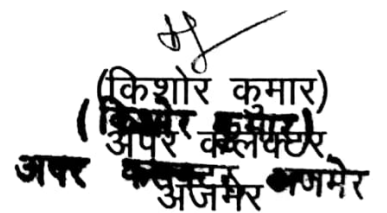 (किशोर कुमार)
(किशोर कुमार)
अपर कलक्टर
अपर कलक्टर अजमेर
अजमेर